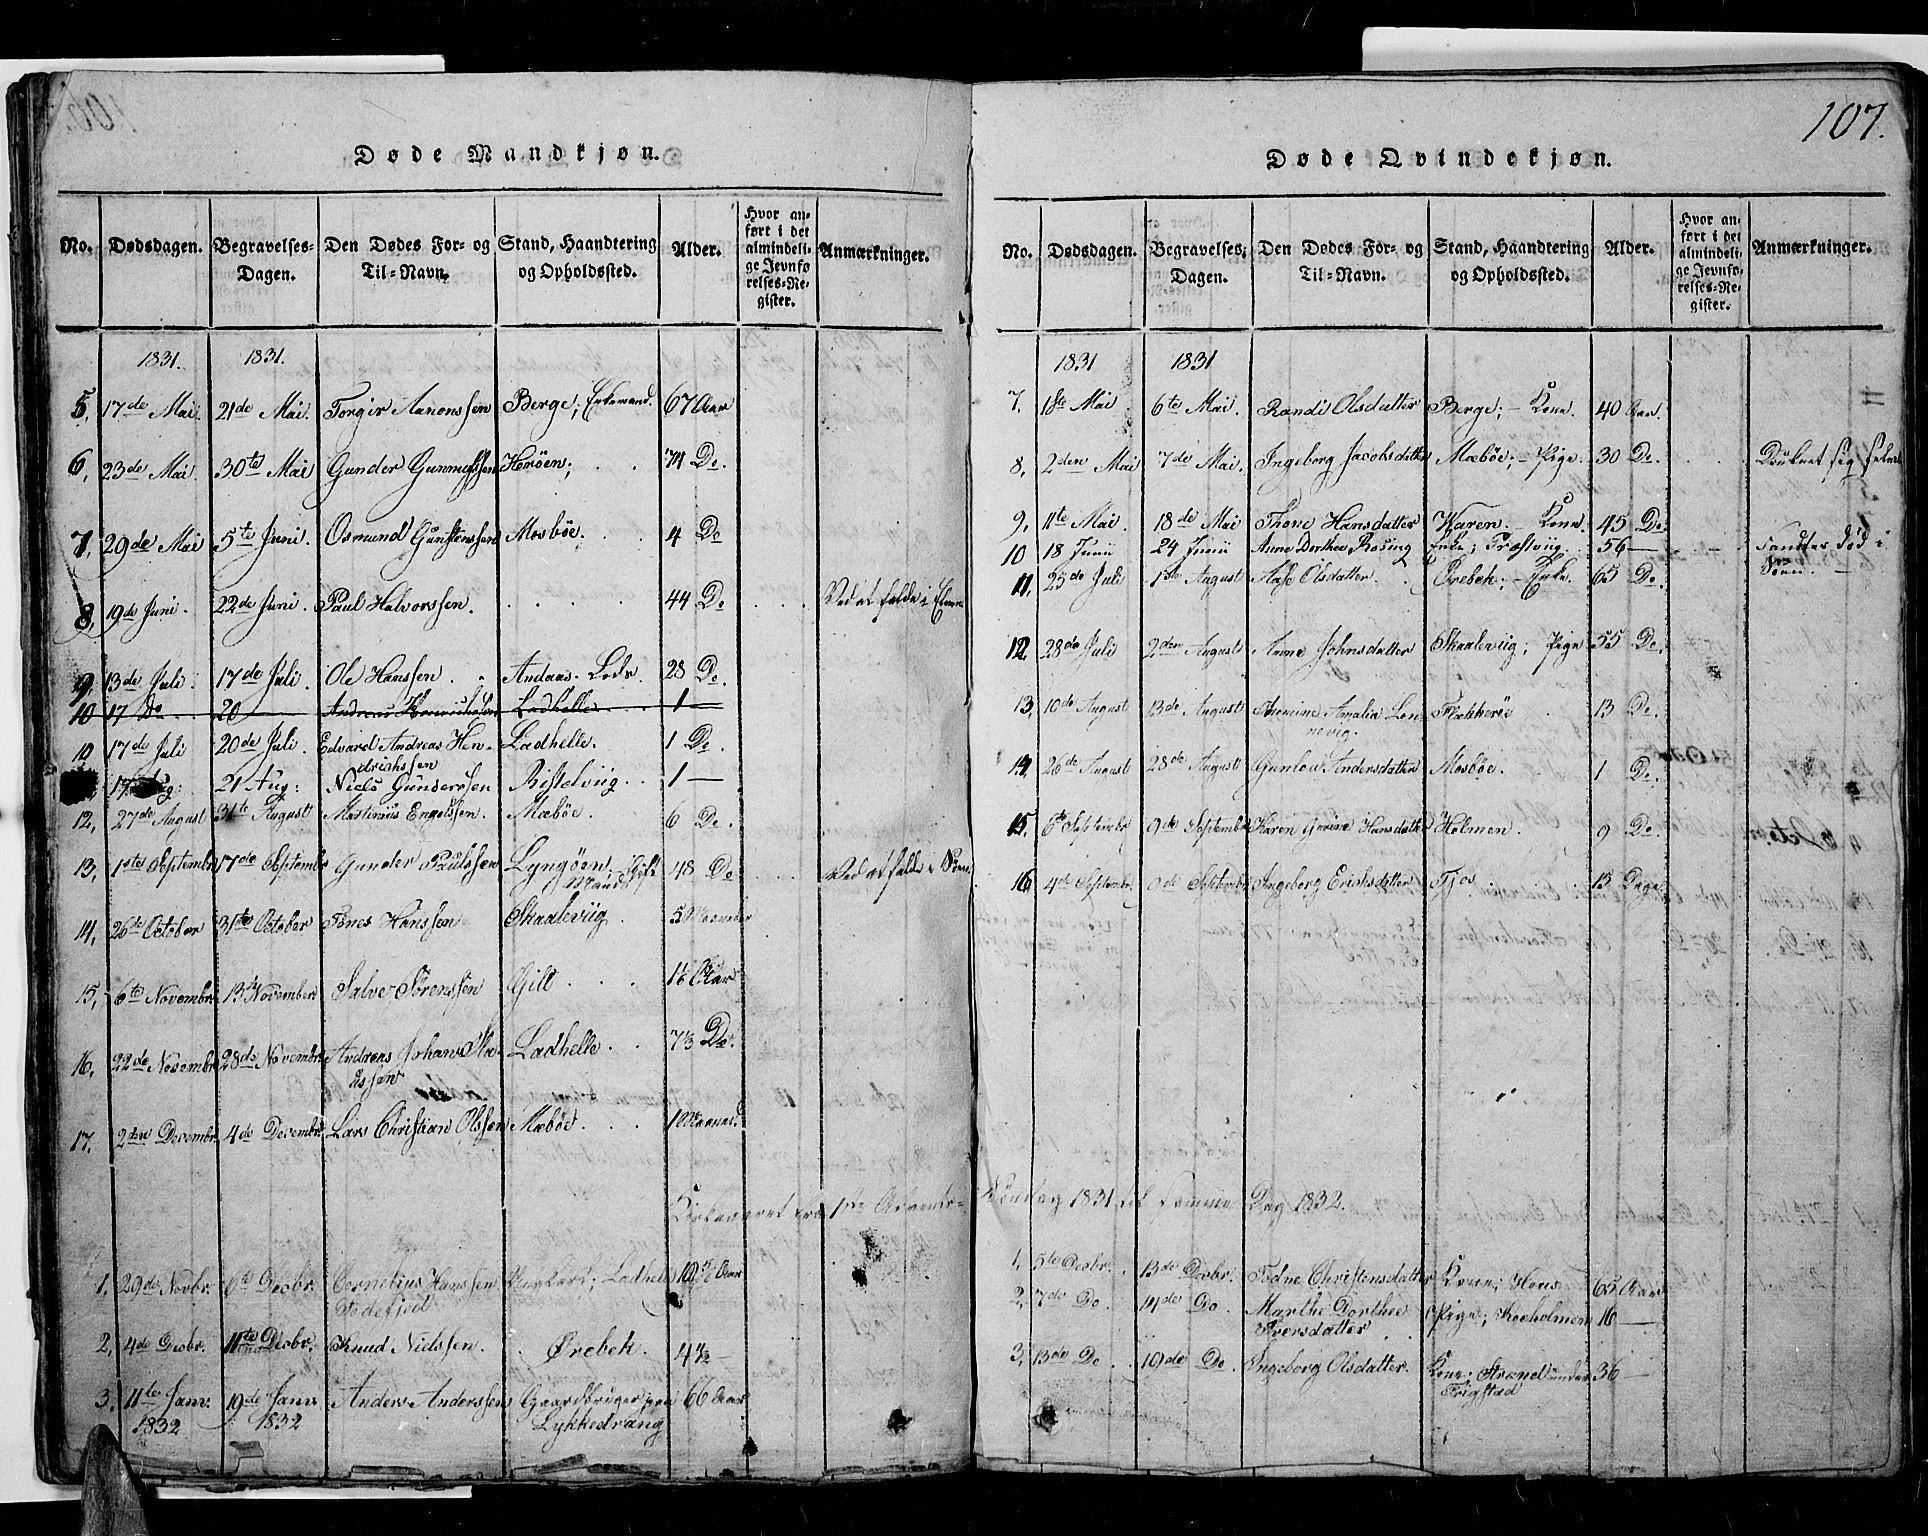 107.
Døde Mandkjøn.
No. Dødsdagen. Begravelses-Dagen. Den Dødes For- og Til-Navn. Stand, Haandtering og Opholdssted. Alder. Hvor anført i det almindelige Jevnførelses-Register. Anmærkninger.
1831. 1831.
5, 17de Mai 21de Mai. Torgir Aanonssen Berge; Enkemand. 67 Aar
6, 23de Mai 30te Mai Gunder Gunnufssen Herøen; 74 Do.
7, 29de Mai 5te Juni Osmund Gunstenssen Mosbøe. 4 Do
8, 19de Juni. 22de Juni Paul Halvorssen. 44 Do Ved at falde i Elven
9, 13de Juli 17de Juli Ole Hanssen Andaas. Lods. 28 Do.
10 17 Do 20 Andreas Ladhelle 1
10 17de Juli 20de Juli Edvard Andreas Hen-
drichssen Ladhelle. 1 Do.
17 Aug: 21 Aug: Niels Gunderssen Ristelviig 1 —
12, 27de August 31te August Martinius Engelssen. Mæbøe. 6 Do.
13, 1ste Septembr 17de Septembr Gunder Paulssen Lyngøen, Gift
Mand 48 Do Ved at falde i Søen
14, 26de October 31te October Tønes Hanssen Skaaleviig 5 Maaneder
15, 6te Novembr. 13de November Salve Sørenssen Gilt Aar
16, 22de Novembr 28de Novembr. Andreas Johan
Ladhelle 7 1/3 Do.
17. 2den Decembr. 4de Decembr. Lars Christian Olssen Mæbøe. 1 Maaned.
Kirkeaaret fra 1ste Advents-
1, 29de Novbr. 6te Decbr. Cornelius Hanssen
Todefjed Ladhelle Aar
2, 4de Decbr. 11te Decbr. Knud Nielssen. Ørebek. 4 1/2 —
3, 11te Janr. 19de Janr. Anders Anderssen Gaardbruger paa 66 Aar
1832 1832 Lykkedrang
Døde Qvindekjøn.
No. Dødsdagen. Begravelses-Dagen. Den Dødes For- og Til-Navn. Stand, Haandtering og Opholdssted. Alder. Hvor anført i det almindelige Jevnførelses-Register. Anmærkninger.
1831 1831
7. 1ste Mai 6te Mai. Randi Olsdatter Berge; — Kone. 40 Aar.
8, 2den Mai 7de Mai. Ingeborg Jacobsdatter Mæbøe; — Pige. 30 Do. Druknet sig selv
9, 11te Mai. 18de Mai Thone Hansdatter Waren. — Kone. 45 Do.
10 18 Junii 24 Junii Anne Dorthea Rosing Enke; Præstviig 56 — Fandtes død i
Søen.
11, 25de Juli 1ste August Aase Olsdatter. Ørebek; — Enke. 65 Do.
12, 28de Juli 2den August Anne Johnsdatter Skaaleviig; Pige 55 Do.
13, 10de August 13de August Thomine Amalia Len-
nevig. Flekkerøe 13 Do.
14, 26de August 28de August Gunlou Andersdatter Mosbøe. 1 Do.
15, 6te Septembr 9de Septembr Karen Gurine Hansdatter Holmen. 9 Do.
16, 4de Septembr. Septembr Ingeborg Erichsdatter Tjos 13 Dage
Søndag 1831 til samme Dag 1832.
1, 5te Decbr. 13de Decbr. Todne Christensdatter Kone; Høns 65 Aar
2, 7de Do 14de Do Marthe Dorthea
Iversdatter Pige; Koeholmen 16 —
3, 13de Do 19de Do. Ingeborg Olsdatter. Kone; Strand under 36 —
Trigstad